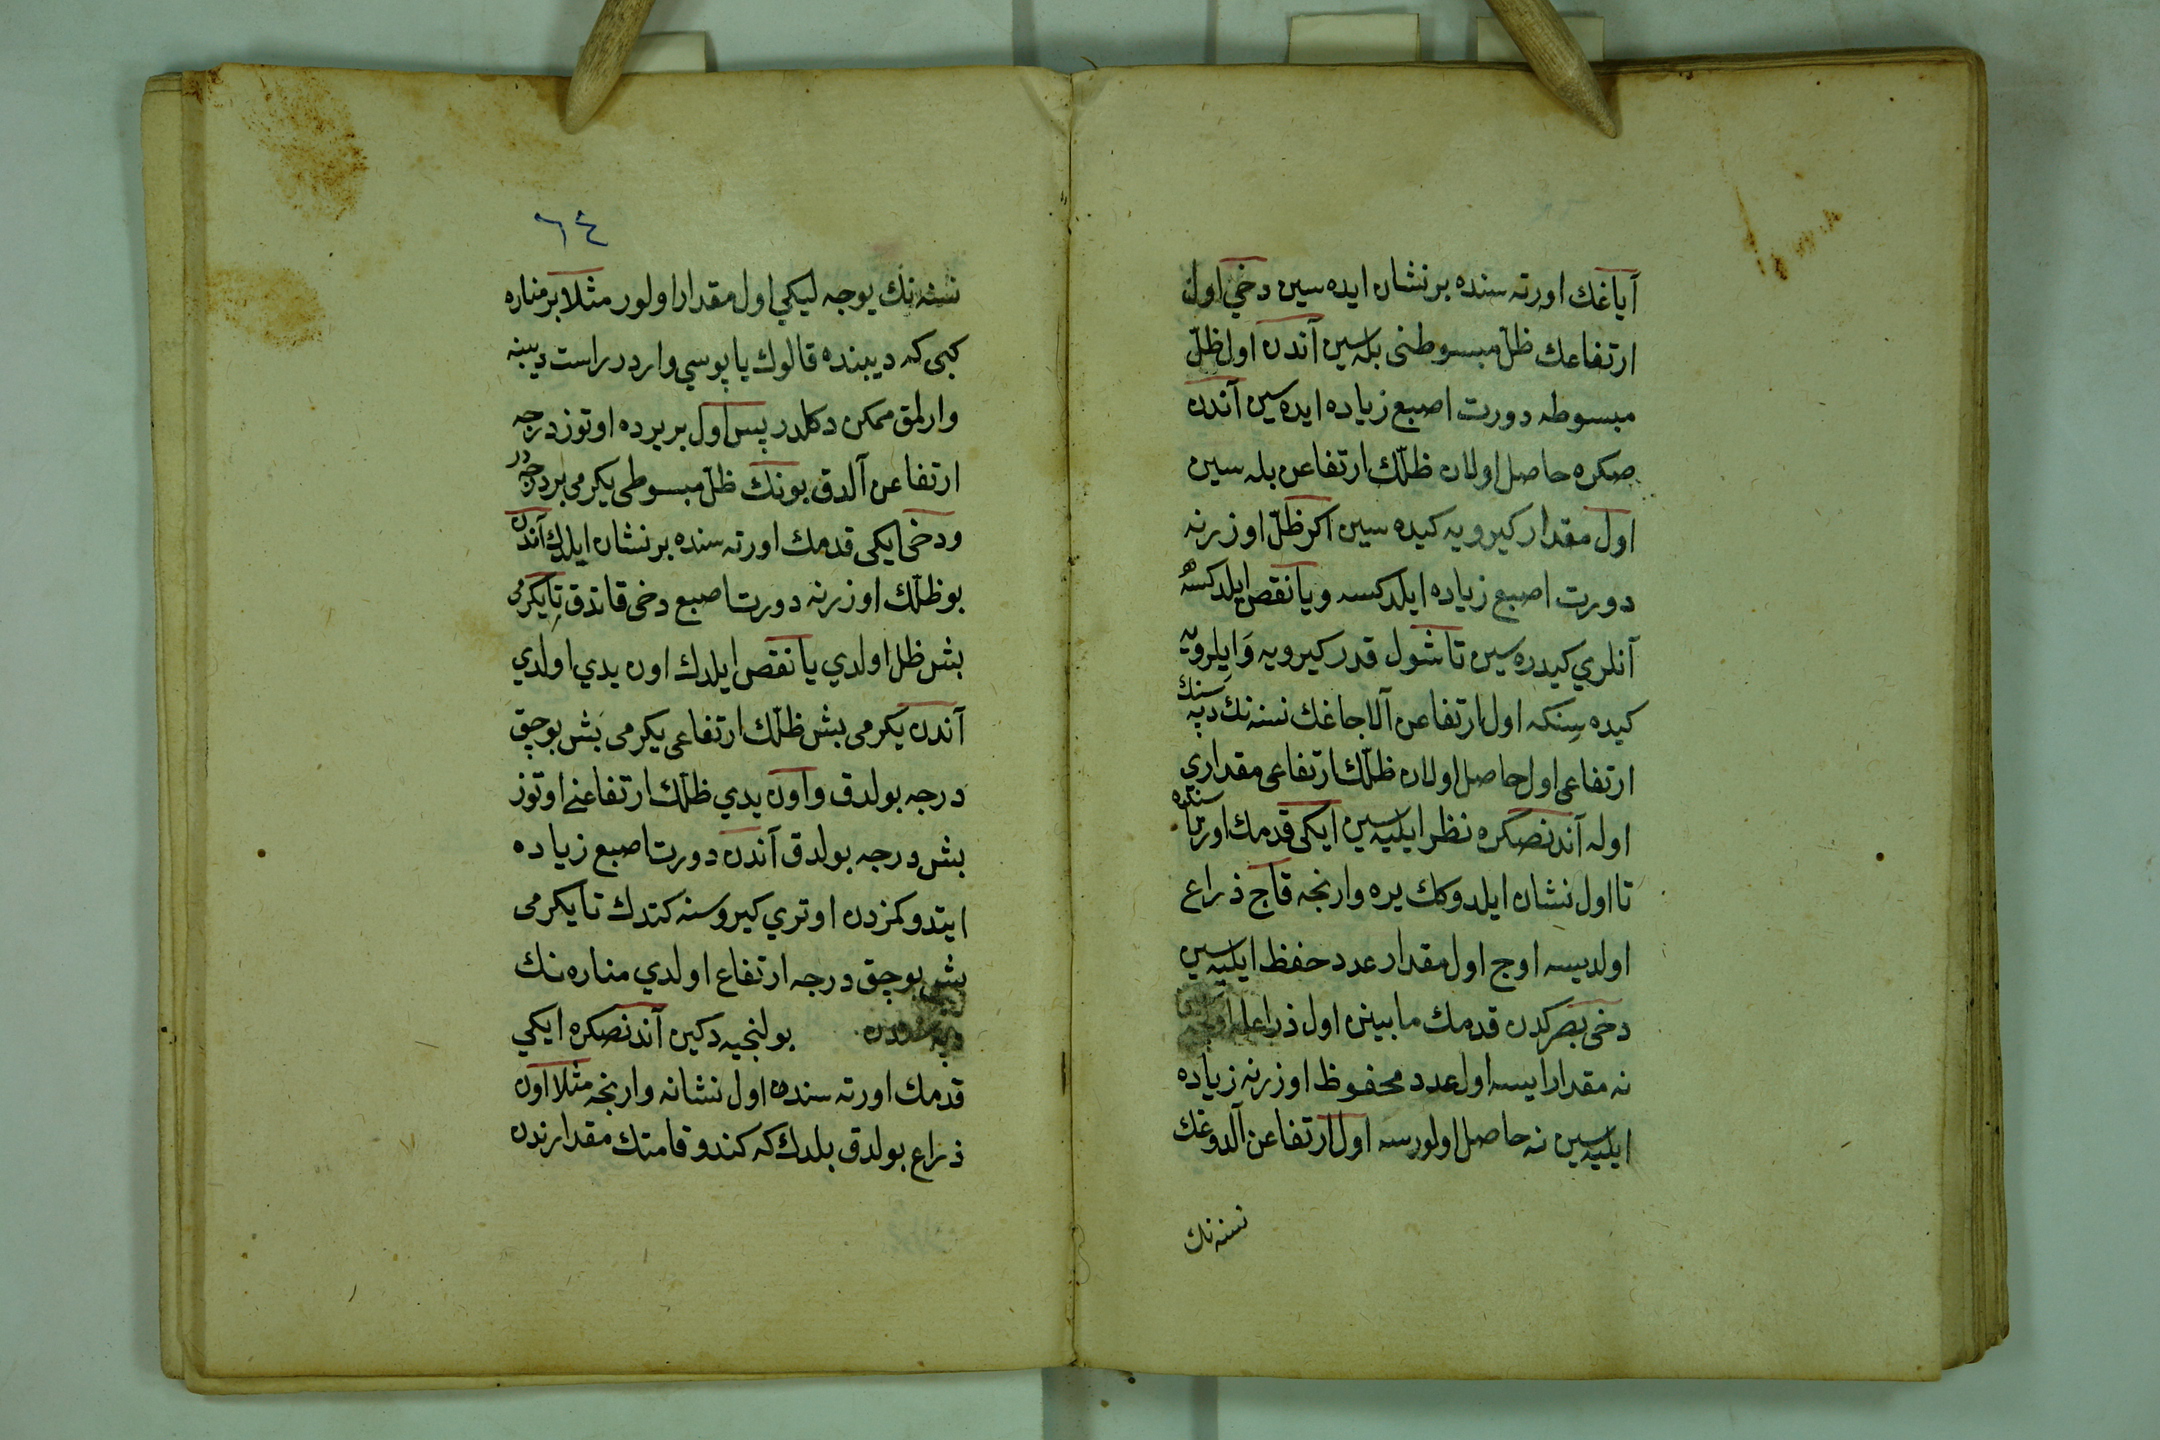 آياغك اورته سنده بر نشان ايده سين دخي اول
ارتفاعك ظلّ مبسوطنى بله سين آندن اول ظلّ
مبسوطه دورت اصبع زياده ايده سين آندن
صكره حاصل اولان ظلّك ارتفاعن بله سين
اول مقدار كيرويه كيده سين اكر ظلّ اوزرنه
دورت اصبع زياده ايلدكسه ويا نقص ايلدكسه
آنلري كيدره سين تا شول قدر كيرويه وَايلرويه
كيده سِنكه اول ارتفاعن آلاجاغك نسنه نك دپه سنك
ارتفاعى اول حاصل اولان ظلّك ارتفاعى مقداري
اوله آندنصكره نظر ايليه سين ايكى قدمك اورتا سندن
تا اول نشان ايلدوكك يره وارنجه قاچ ذراع
اولديسه اوج اول مقدار عدد حفظ ايليه سين
دخى بصركدن قدمك مابينن اول ذراعله
نه مقدار ايسه اول عدد محفوظ اوزرنه زياده
ايليه سين نه حاصل اولورسه اول ارتفاعن آلدوغك
نسنه نك
٦٤
نسنه نك يوجه ليكي اول مقدار اولور مثلا بر مناره
كبى كه ديبنده قالوك ياپوسي واردر راست ديبنه
وارلمق ممكن دكلدر پس اول بر يرده اوتوز درجه
ارتفاعن آلدق بونك ظلّ مبسوطى يكرمى بر درجه در
ودخى ايكى قدمك اورته سنده بر نشان ايلدك آندن
بو ظلّك اوزرنه دورت اصبع دخى قاتدق تا يكرمى
بش ظل اولدي يا نقص ايلدك اون يدي اولدي
آندن يكرمى بش ظلّك ارتفاعى يكرمى بش بوچق
درجه بولدق واون يدي ظلّك ارتفاعنے اوتوز
بش درجه بولدق آندن دورت اصبع زياده
ايتدوكمزدن اوتري كيروسنه كتدك تا يكرمى
بش بوچق درجه ارتفاع اولدي مناره نك
بولنجيه دكين آندنصكره ايكي
قدمك اورته سندن اول نشانه وارنجه مثلا اون
ذراع بولدق بلدك كه كندو قامتك مقدارندن